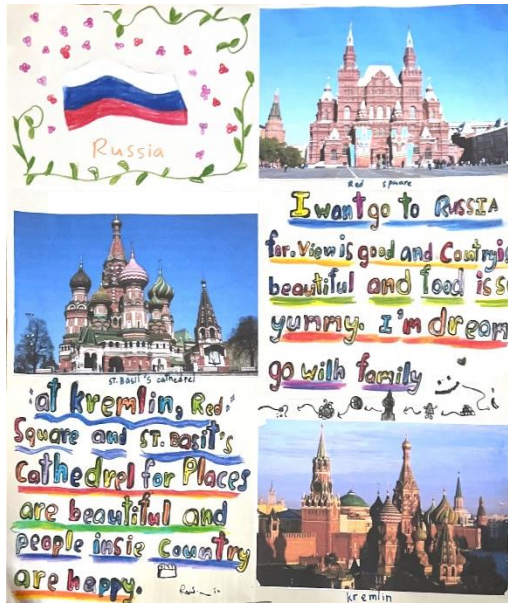 Russia
Red square
I want go to RUSSIA
for. View is good and Coutry is
beautiful and food is so
yummy. I'm dream
go with family
ST. Basil's cathedrel
"at kremlin, Red"
Square and ST. Basit's
Cathedrel for Places
are beautiful and
people insie Country
are heppy.
kremlin